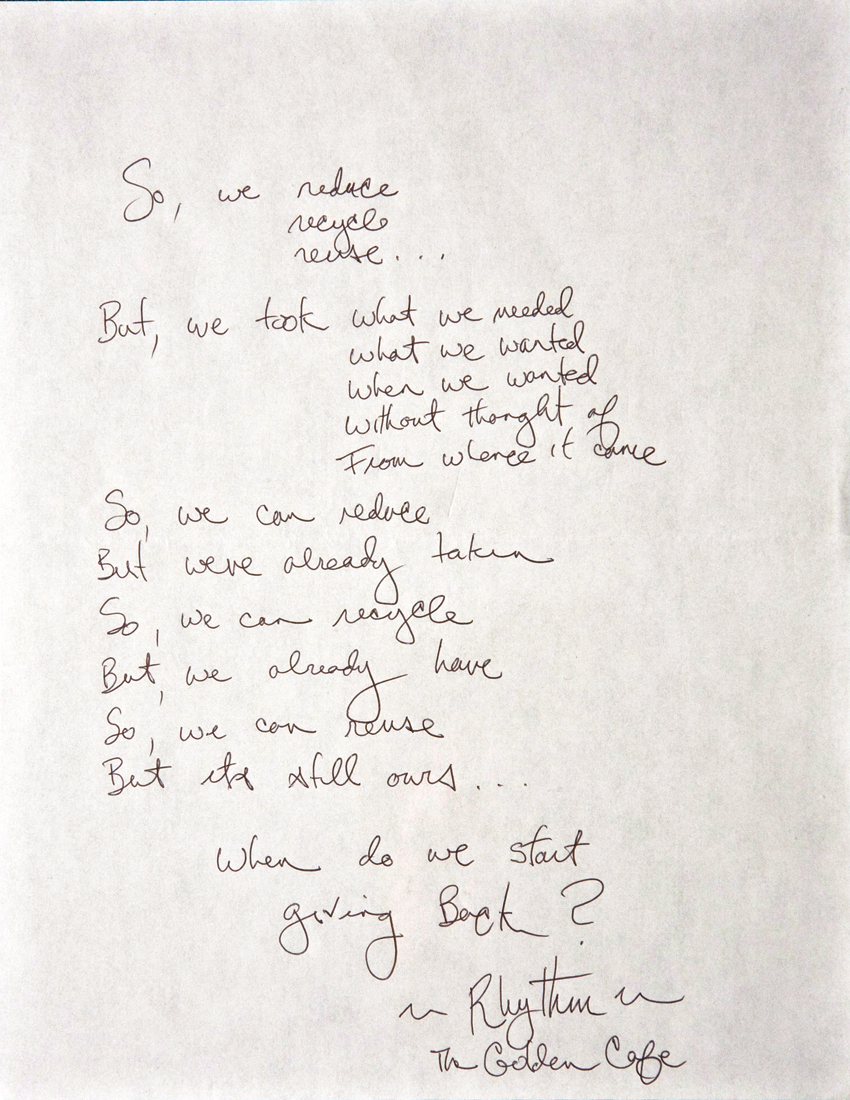 So, we reduce
recycle
reuse....
But, we took what we needed
what we wanted
when we wanted
without thought of
From whence it came
So, we can reduce
But weve already taken
So, we can recycle
But, we already have
So, we can reuse
But its still ours....
When do we start
giving Back?
~ Rhythm ~
The Golden Cafe